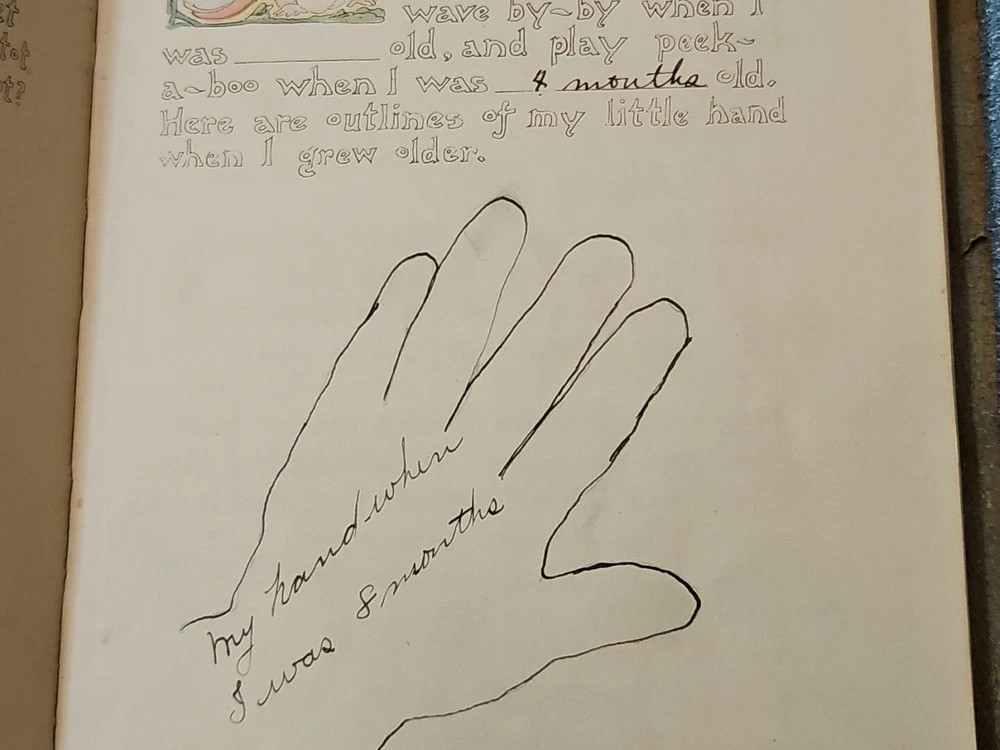 wave by~by when I
was ________ old, and play peek~
a~boo when I was 8 months old.
Here are outlines of my little hand
when I grew older.
my hand when
I was 8 months